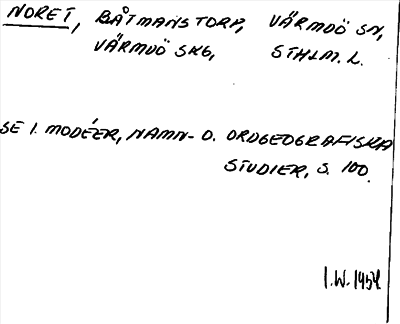 NORET, BÅTMANSTORP, VÄRMDÖ SN,
VÄRMDÖ SKG, STHLM. L.
SE I. MODÉER, NAMN- O. ORDGEOGRAFISKA
STUDIER, S. 100.
I.W. 1954